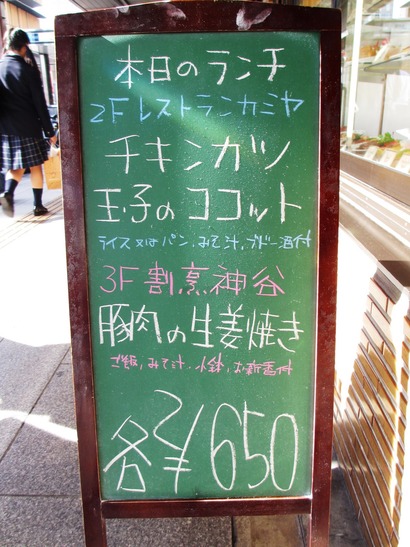 本日のランチ
2F レストランカミヤ
チキンカツ
玉子のココット
ライス又はパン、みそ汁、ブドー酒付
3F 割烹神谷
豚肉の生姜焼き
ご飯、みそ汁、小鉢、お新香付
各々¥650